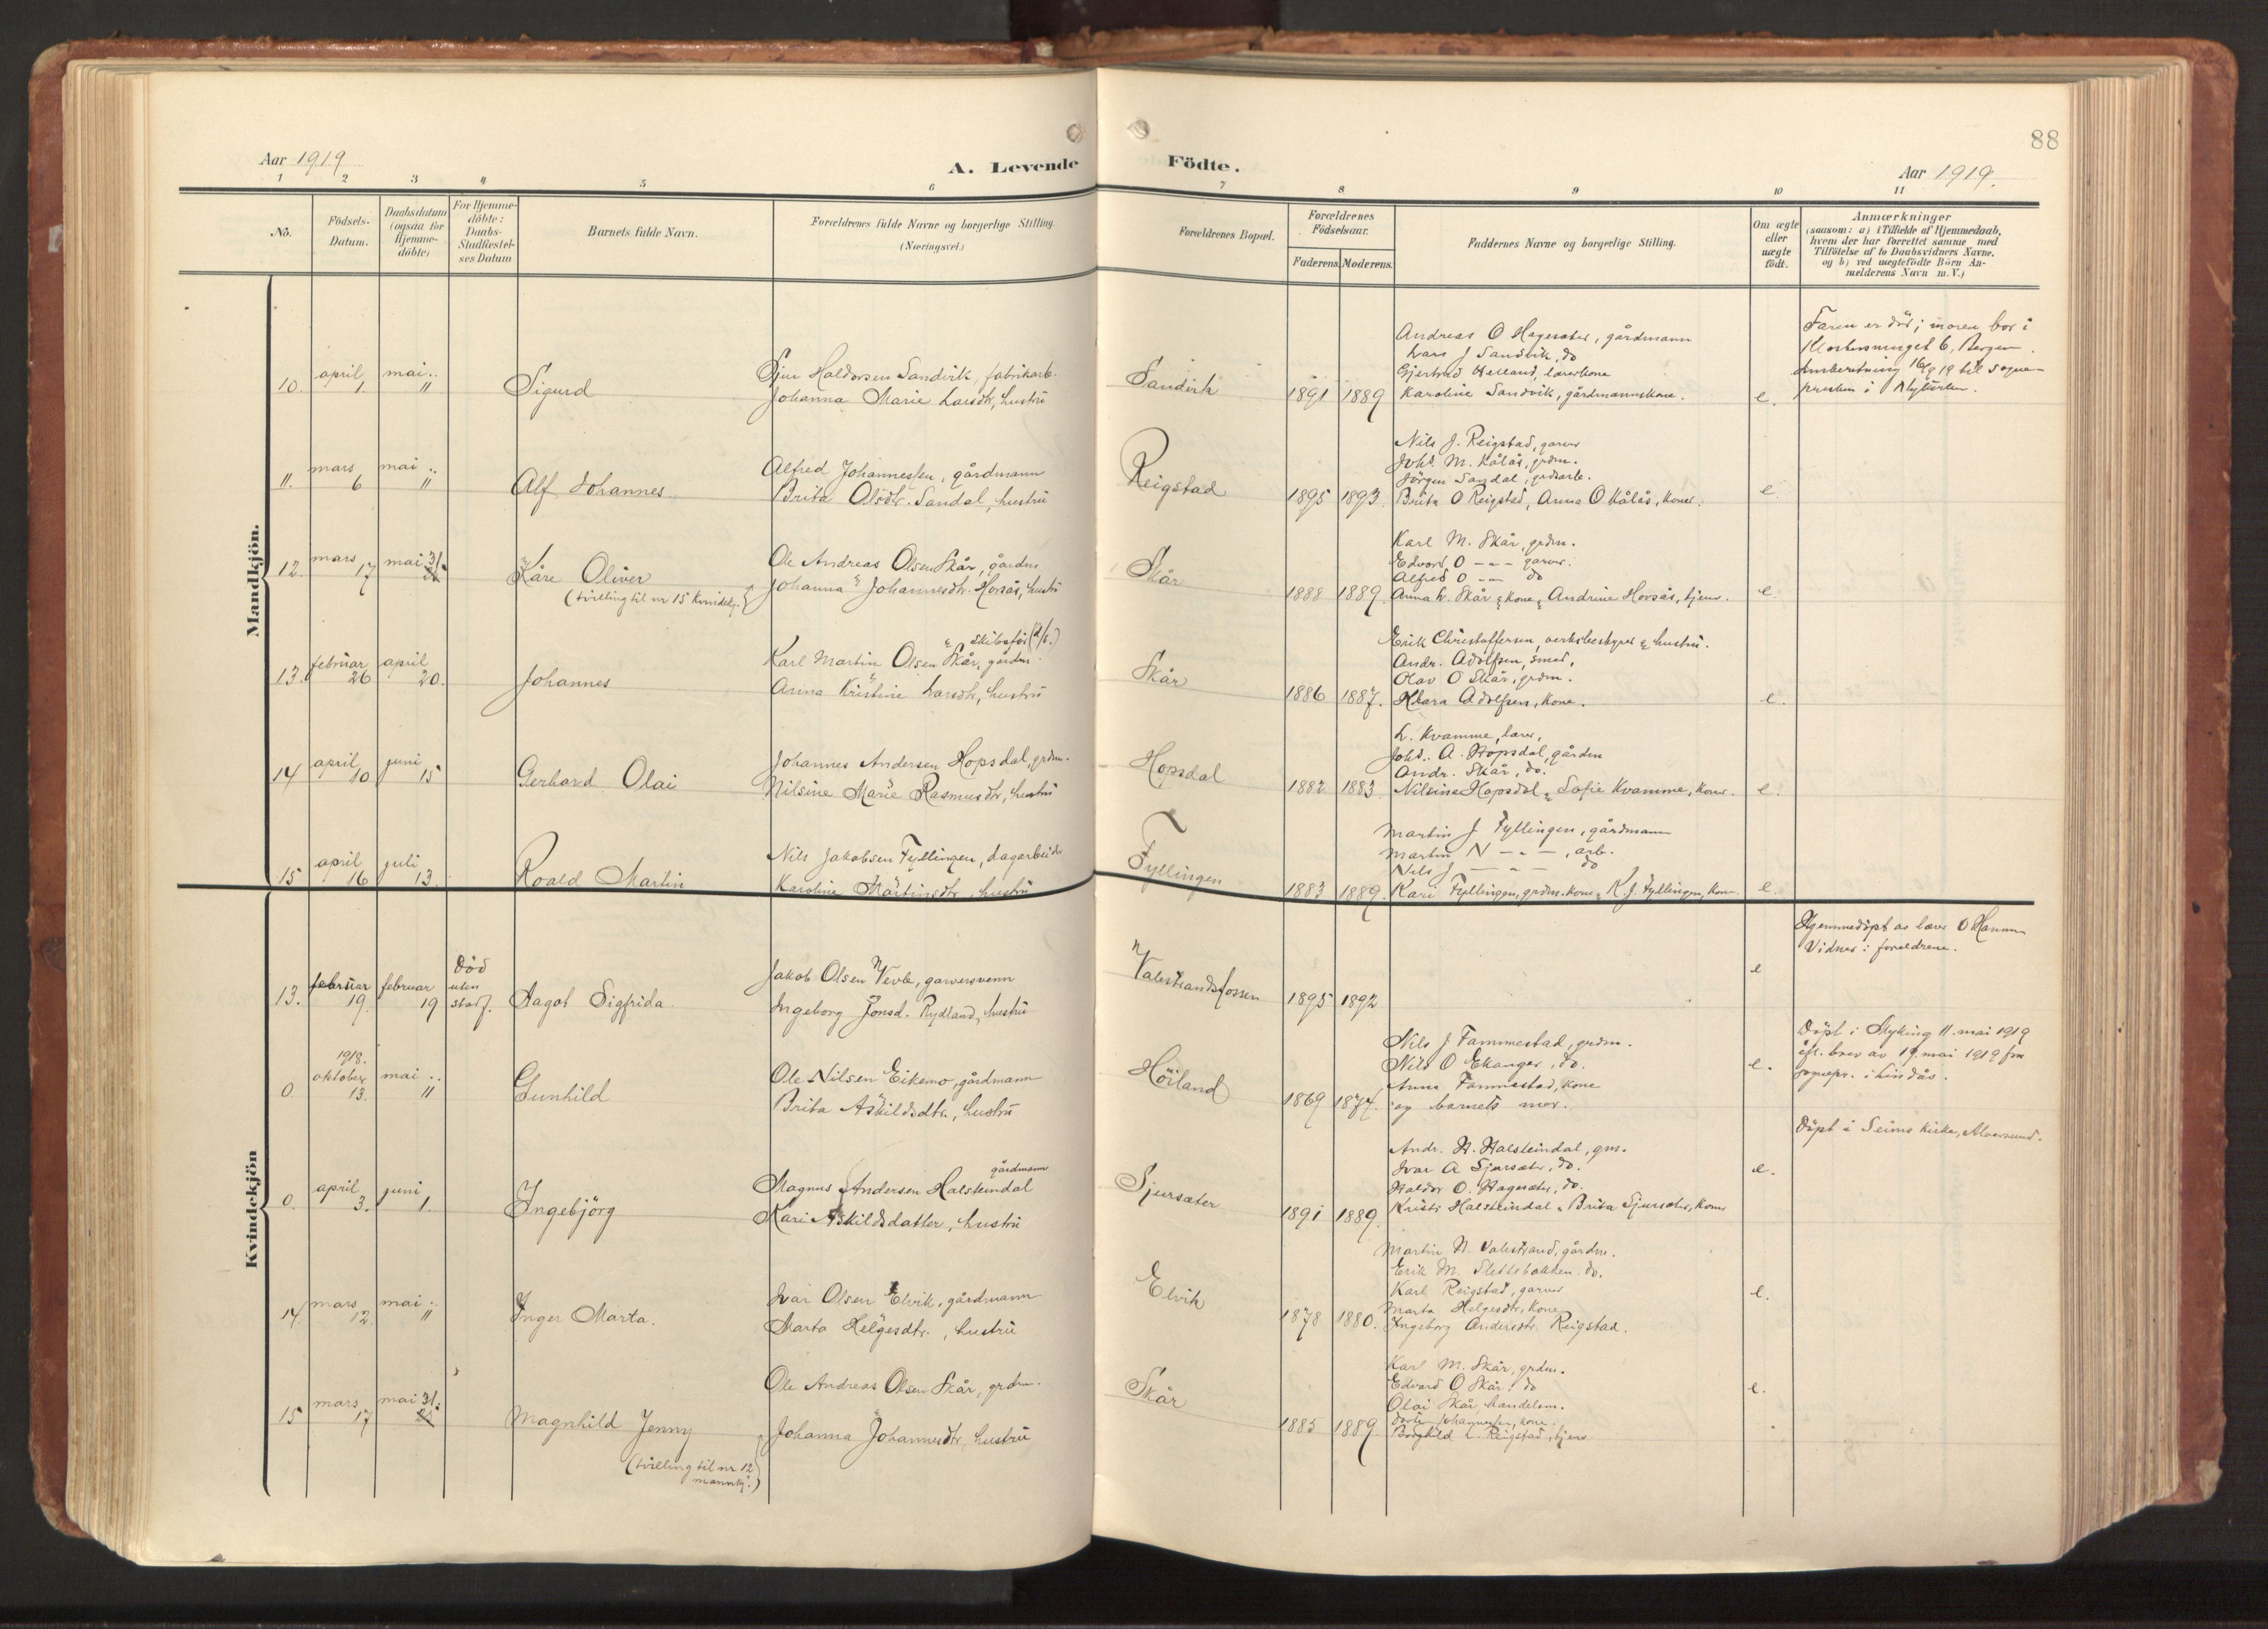 88
Aar 1919
A. Levende
Födte.
Aar 1919.
1 2 3 4 5 6 7 8 9 10 11
No.
Födsels-
Datum.
Daabsdatum
(ogsaa for
Hjemme-
döbte)
For Hjemme-
döbte:
Daabs-
Stadfæstel-
ses Datum
Barnets fulde Navn.
Forældrenes fulde Navne og borgerlige Stilling.
(Næringsvei.)
Forældrenes Bopæl.
Forældrenes
Födselsaar.
Faderens.
Moderens.
Faddernes Navne og borgerlige Stilling.
Om ægte
eller
uægte
födt.
Anmærkninger
(saasom: a) i Tilfælde af Hjemmedaab,
hvem der har forrettet samme med
Tilföielse af to Daabsvidners Navne.
og b) ved uægtefödte Börn An-
melderens Navn m. V.)
Mandkjön.
10.
april
1.
mai
11
Sigurd
Sjur Haldorsen Sandvik, fabrikarb.
Johanna Marie Larsdtr, hustru
Sandvik
1891 1889
Andreas O Hagesæter, gårdmann
Lars J Sandvik, do
Gjertrud Helland, lærerkone
Karoline Sandvik, gårdmannskone.
e.
Faren er död; moren bor i
6, Bergen.
16/9 19 til sogne-
presten i
11.
mars
6
mai
11
Alf Johannes
Alfred Johannessen, gårdmann
Brita Olsdtr. Sandal, hustru
Reigstad
1895 1893
Nils J. Reigstad, garver
Johs. M. Kålås, grdm.
Jörgen Sandal, grdarb.
Brita O Reigstad, Anna O Kålås, koner.
e
12.
mars
17
mai 31.
Kåre Oliver
(tvilling til nr 15 kvindekj.)
Ole Andreas Olsen Skår, gårdm
Johanna Johannesdtr. Horsås, hustru
Skår
1888 1889
Karl M. Skår, grdm.
Edvard O - " - garver.
Alfred O - " - do
Anna L. Skår, kone, Andrine Horsås, tjener.
e.
13.
februar
26
april
20.
Johannes
Karl Martin Olsen Skår, gårdm.
Anna Kristine Larsdtr, hustru
Skår
1886 1887.
Erik Christoffersen, verksbestyrer & hustru.
Andr. Adolfsen, smed,
Olav O Skår, grdm.
Klara Adolfsen, kone.
e.
14
april
10
juni
15
Gerhard Olai
Johannes Andersen Hopsdal, grdm.
Nilsine Marie Rasmusdtr, hustru
Hopsdal
1882 1883
L. Kvamme, lærer,
Johs. A. Hopsdal, gårdm
Andr. Skår, do.
Nilsine Hopsdal & Sofie Kvamme, koner.
e.
15
april
16
juli
13.
Roald Martin
Nils Jakobsen Fyllingen, dagarbeider
Karoline Martinsdtr, hustru
Fyllingen
1883 1889.
Martin J Fyllingen, gårdmann
Martin N - " - , arb.
Nils J - " - do
Kari Fyllingen, grdm.kone, K.J. Fyllingen, kone.
e.
Kvindekjön
13.
februar
19.
februar
19
Död
uten
stadf.
Dagot Sigfrida.
Jakob Olsen Vevle, garversvenn
Ingeborg Jonsd. Rydland, hustru
Valestrandsfossen
1895 1892
e
Hjemmedöpt av lærer O Hannum
Vidner: foreldrene.
0
1918.
oktober
13.
mai
11
Gunhild
Ole Nilsen Eikemo, gårdmann
Brita Askildsdtr., hustru
Höiland
1869 1874.
Nils J Fammestad, grdm.
Nils O Ekanger, do.
Anna Fammestad, kone
og barnets mor.
e.
Döpt i Myking 11. mai 1919
ifl. brev av 19. mai 1919 fra
sognepr. i Lindås.
0.
april
3.
juni
1.
Ingebjörg
gårdmann
Magnus Andersen Halsteindal
Kari Askildsdatter, hustru
Sjursæter
1891 1889.
Andr. H. Halsteindal, gm.
Ivar A Sjursæter, do.
Haldor O. Hagesæter, do.
Kristi Halsteindal, Brita Sjursæter, koner
e.
Döpt i Seims kirke, Alversund.
14
mars
12
mai
11
Inger Marta.
Ivar Olsen Elvik, gårdmann
Marta Helgesdtr., hustru
Elvik
1878 1880.
Martin N. Valestrand, gårdm.
Erik M. Slettebakken. do.
Karl Reigstad, garver
Marta Helgesdtr, kone
Ingeborg Andersdtr. Reigstad.
e.
15
mars
17
mai 31.
Magnhild Jenny
(tvilling til nr 12
mannkj.)
Ole Andreas Olsen Skår, grdm.
Johanna Johannesdtr, hustru
Skår
1885 1889
Karl M. Skår, grdm.
Edvard O Skår. do
Olai Skår, handelsm.
Johannessen, kone.
Borghild L. Reigstad, tjener
e.